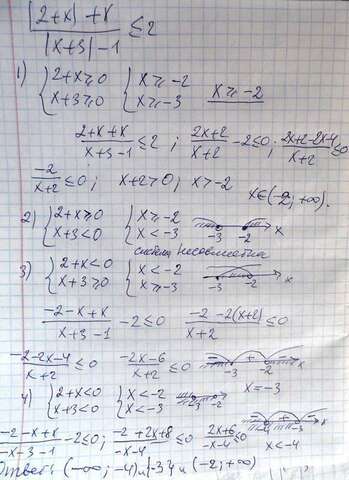 |2+x|+x / |x+3|-1 ≤ 2
1) { 2+x ⩾ 0 { x ⩾ -2
x+3 ⩾ 0 x ⩾ -3 x ⩾ -2
2+x+x / x+3-1 ≤ 2 ; 2x+2 / x+2 - 2 ≤ 0 ; 2x+2-2x-4 / x+2 ≤ 0
-2 / x+2 ≤ 0 ; x+2 > 0 ; x > -2
x∈(-2; +∞).
2) { 2+x ⩾ 0 { x ⩾ -2
x+3 < 0 x < -3 -3 -2 x
система несовместна
3) { 2+x < 0 { x < -2
x+3 ⩾ 0 x ⩾ -3 -3 -2 x
-2-x+x / x+3-1 - 2 ≤ 0 -2-2(x+2) / x+2 ≤ 0
-2-2x-4 / x+2 ≤ 0 -2x-6 / x+2 ≤ 0 - + - -3 -2 x
x=-3
4) { 2+x < 0 { x < -2
x+3 < 0 x < -3 -3 -2 x
-2-x+x / -x-3-1 - 2 ≤ 0 ; -2+2x+8 / -x-4 ≤ 0 2x+6 / -x-4 ≤ 0 - + - -4 -3 x
x < -4
Ответ: (-∞; -4) и {-3} и (-2; +∞)